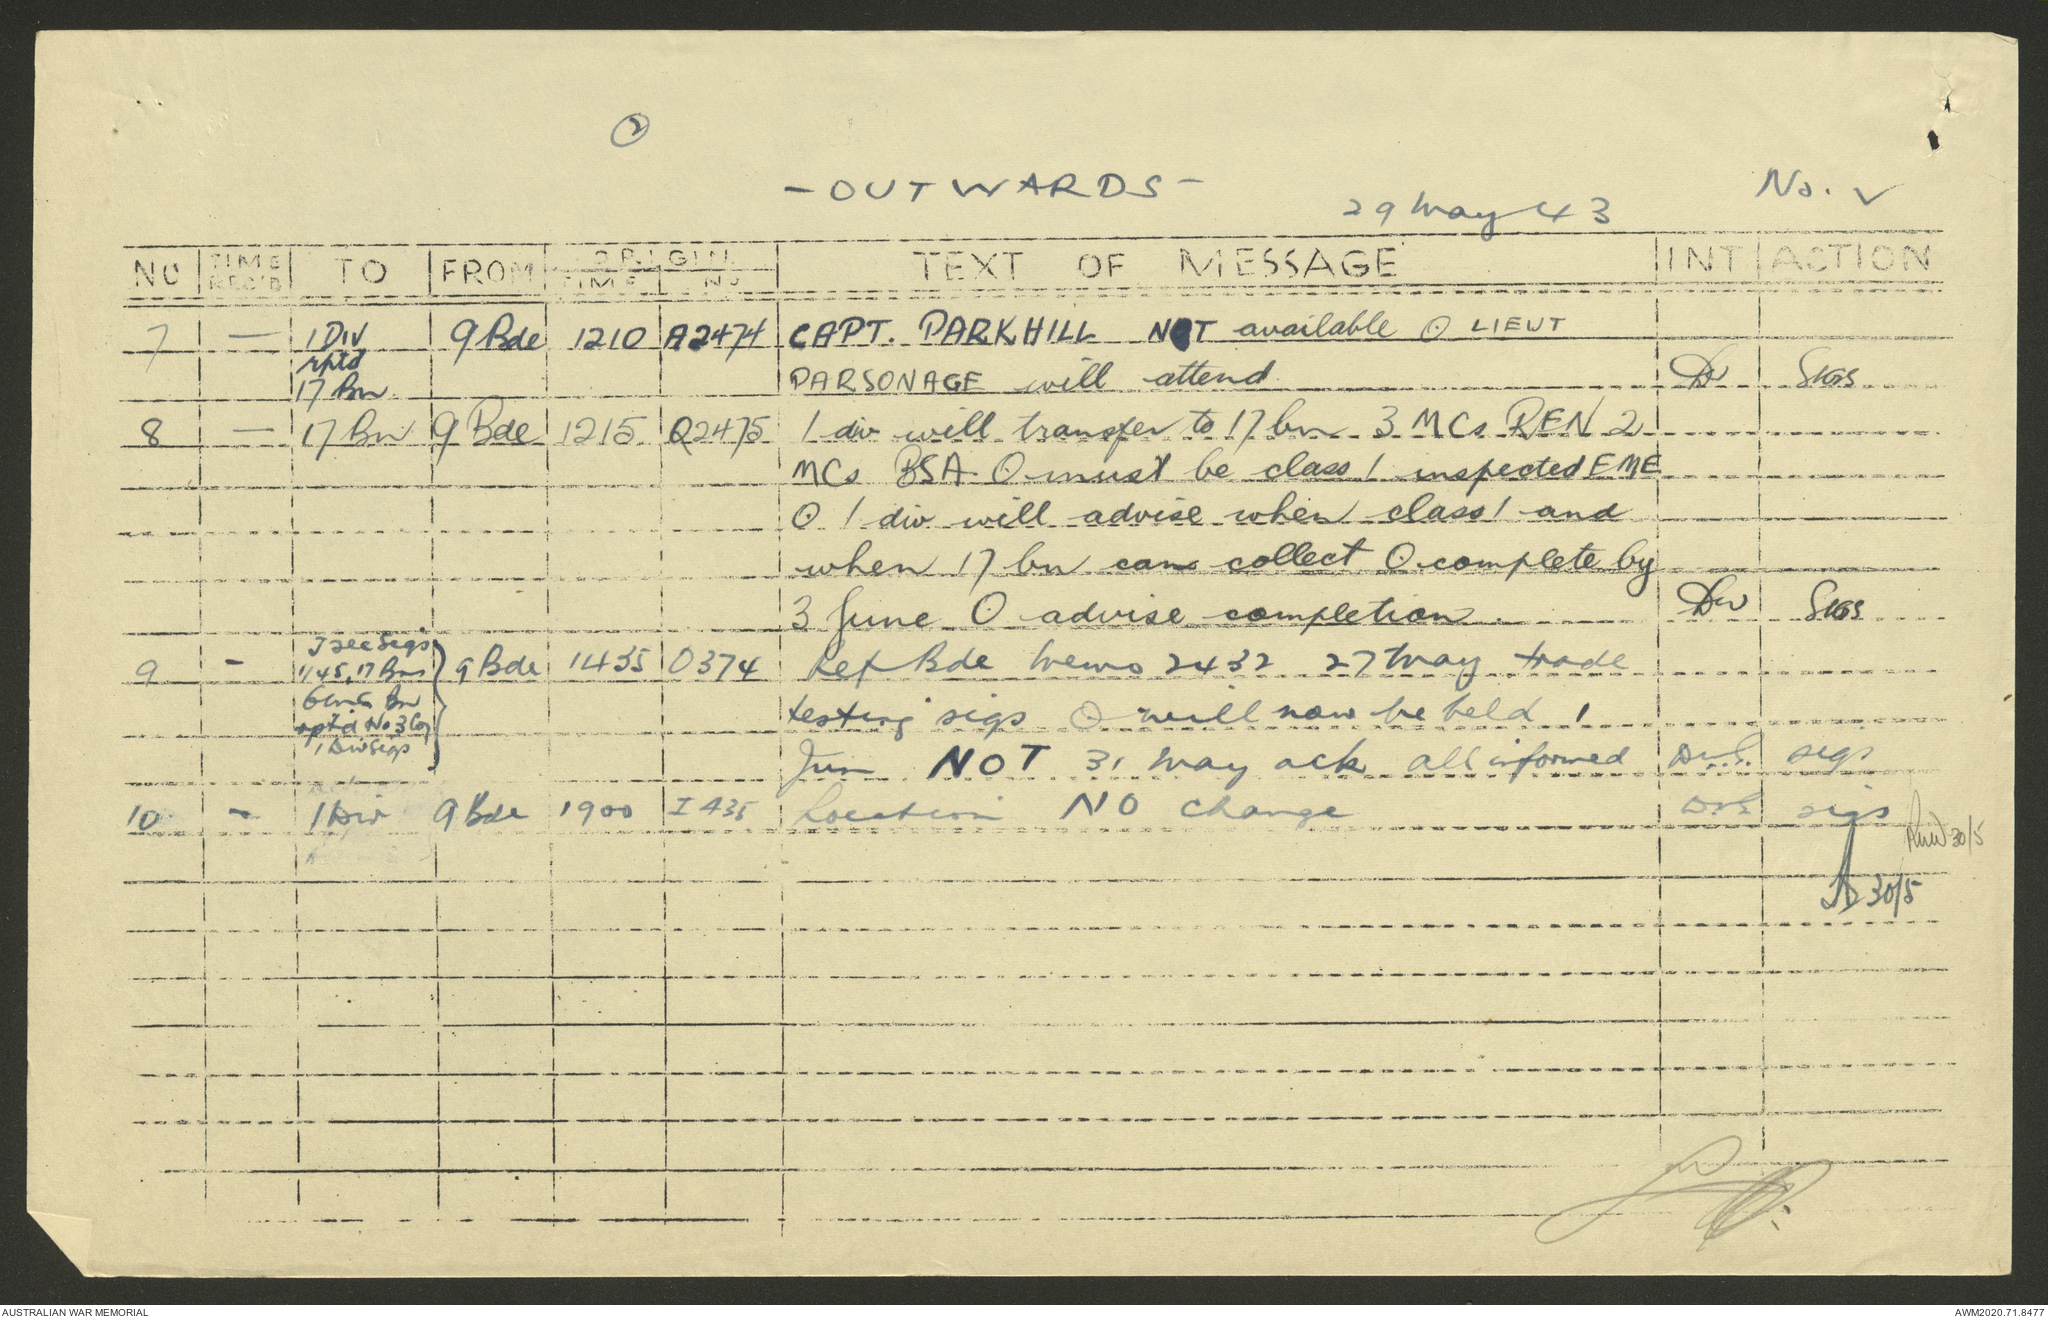 2
- OUTWARDS -
29 May 43
No. V
NO | TIME REC'D | TO | FROM | ORIGIN TIME | NO | TEXT OF MESSAGE | INT | ACTION
7 | — | 1 DIV rptd 17 Bn | 9 Bde | 1210 | A2474 | CAPT. PARKHILL NOT available O LIEUT
PARSONAGE will attend | | SIGS
8 | — | 17 Bn | 9 Bde | 1215 | Q2475 | 1 div will transfer to 17 bn 3 MCs REN 2
MCs BSA O must be class 1 inspected EME
O 1 div will advise when class 1 and
when 17 bn can collect O complete by
3 June O advise completion | | SIGS
9 | - | J Sec Sigs 1/45, 17 Bns Bn rptd No 3 Coy 1 Div Sigs | 9 Bde | 1435 | O374 | Ref Bde Memo 2432 27 May trade
testing sigs O will now be held 1
Jun NOT 31 May ack all informed | | sigs
10 | - | 1 Div | 9 Bde | 1900 | I 435 | Location NO change | | sigs
30/5
30/5
AUSTRALIAN WAR MEMORIAL
AWM2020.71.8477